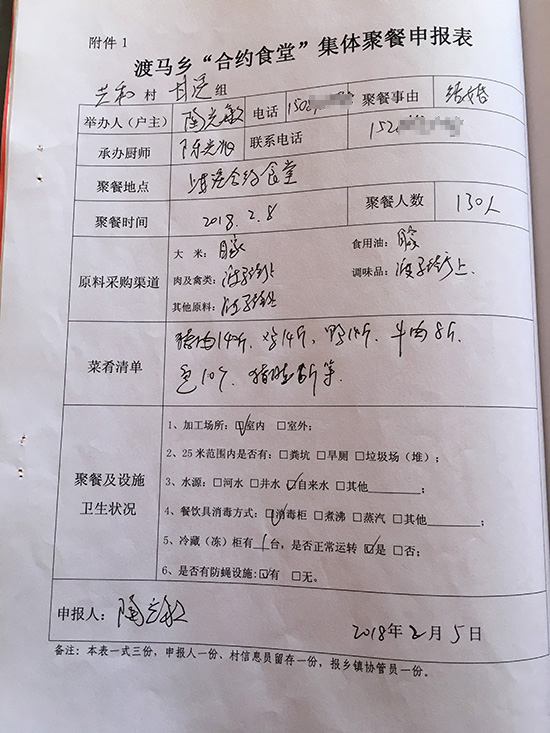 附件 1
渡马乡“合约食堂”集体聚餐申报表
共和 村 组
举办人(户主) 电话 聚餐事由 结婚
承办厨师 联系电话
聚餐地点 合约食堂
聚餐时间 2018.2.8 聚餐人数 130人
原料采购渠道
大 米: 自家 食用油: 自家
肉及禽类: 街上 调味品: 街上
其他原料: 街上
菜肴清单
猪肉140斤. 牛肉8斤.
聚餐及设施卫生状况
1、加工场所:☑室内 □室外;
2、25 米范围内是否有:□粪坑 □旱厕 □垃圾场(堆);
3、水源:□河水 □井水 ☑自来水 □其他______;
4、餐饮具消毒方式:☑消毒柜 □煮沸 □蒸汽 □其他______;
5、冷藏(冻)柜有 1 台,是否正常运转 ☑是 □否;
6、是否有防蝇设施:☑有 □无。
申报人:
2018年2月5日
备注:本表一式三份,申报人一份、村信息员留存一份,报乡镇协管员一份。